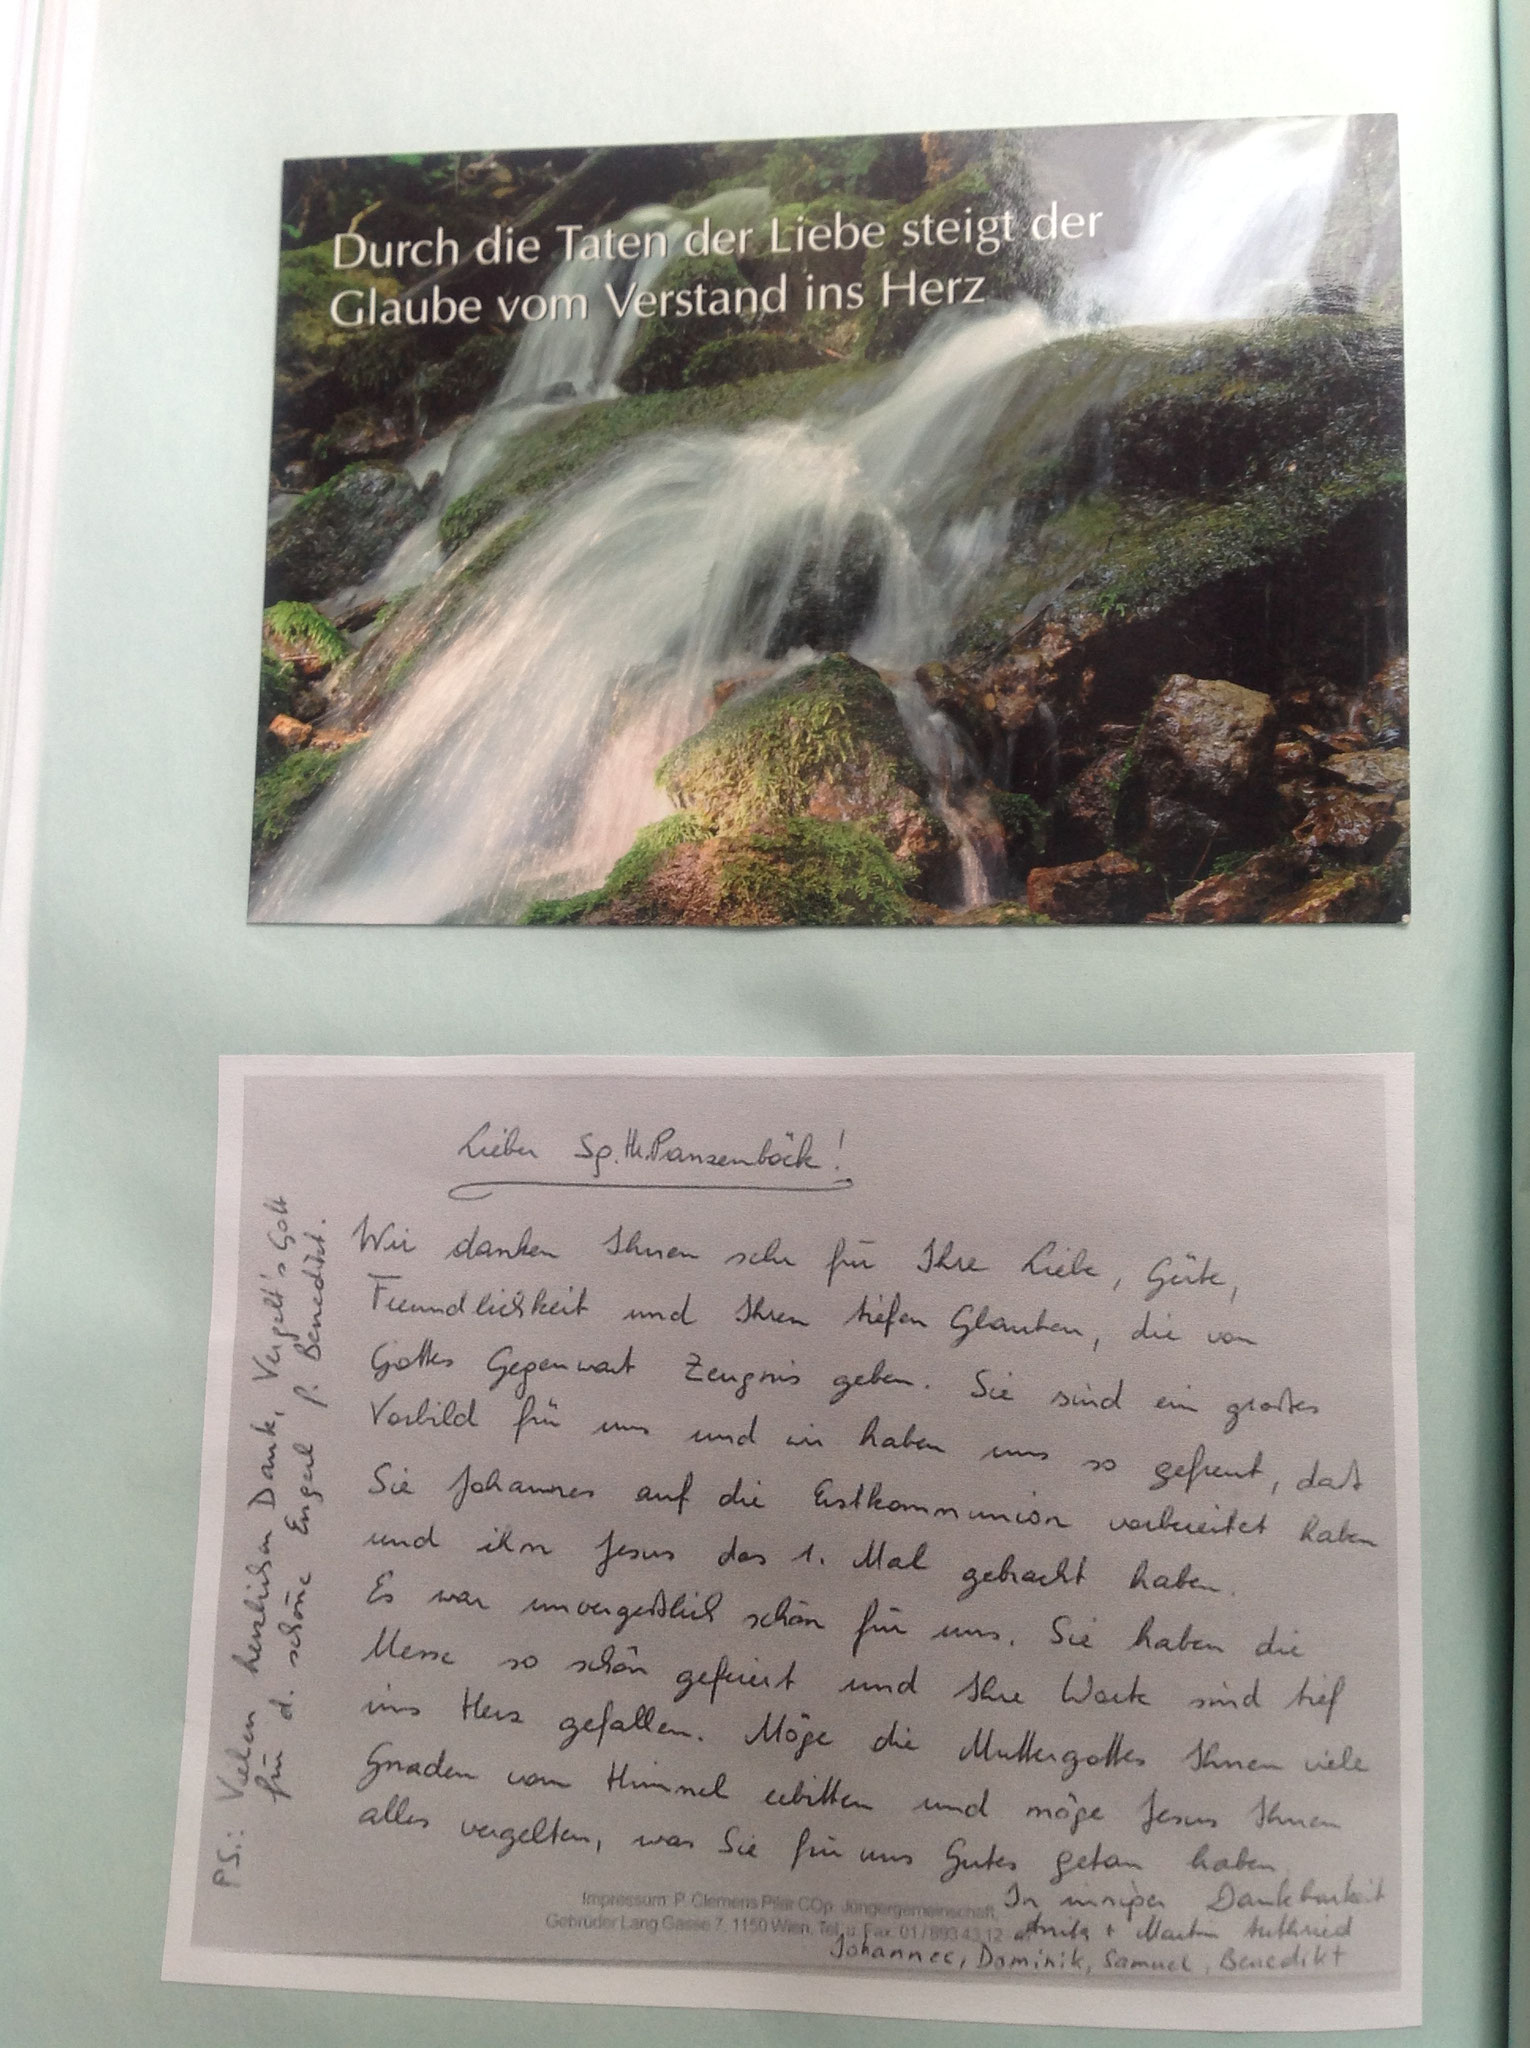 Durch die Taten der Liebe steigt der
Glaube vom Verstand ins Herz
Lieber Sp. Th. Panzenböck!
Wir danken Ihnen sehr für Ihre Liebe, Güte,
Freundlichkeit und Ihren tiefen Glauben, die von
Gottes Gegenwart Zeugnis geben. Sie sind ein großes
Vorbild für uns und wir haben uns so gefreut, daß
Sie Johannes auf die Erstkommunion vorbereitet haben
und ihm Jesus das 1. Mal gebracht haben.
Es war unvergeßlich schön für uns. Sie haben die
Messe so schön gefeiert und Ihre Worte sind tief
ins Herz gefallen. Möge die Muttergottes Ihnen viele
Gnaden vom Himmel erbitten und möge Jesus Ihnen
alles vergelten, was Sie für uns Gutes getan haben
In inniger Dankbarkeit
Anita + Martin
Johannes, Dominik, Samuel, Benedikt
Impressum: P. Clemens Pilar COp. Jüngergemeinschaft,
Gebrüder Lang Gasse 7, 1150 Wien, Tel. u. Fax. 01/893 43 12
PS.: Vielen herzlichen Dank, Vergelt's Gott
für d. schöne Engerl f. Benedikt.